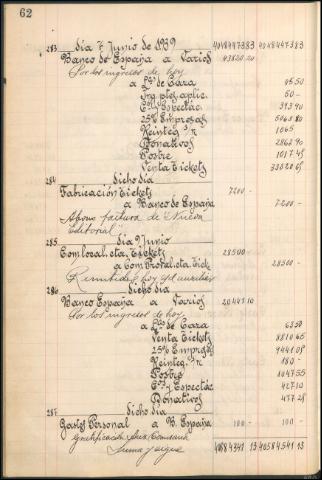 62
283 día 7 Junio de 1939 40484473 83 40484473 83
Banco de España a Varios 43820 20
Por los ingresos de hoy
a de Cara 95 50
Ing. ptes. aplic. 50 -
y Espectác. 313 90
25% Empresas 5063 80
Reinteg. 10 65
Donativos 2862 90
Postre 1017 45
Venta Tickets
284 dicho día
Fabricación Tickets 7200 -
a Banco de España 7200 -
Abono factura de "Nueva
Editorial"
285 día 9 Junio
Com. local, cta. Tickets 28500 -
a Com. Proval. cta. Tick. 28500 -
Remitida hoy
286 dicho día
Banco España a Varios 20447 10
Por los ingresos de hoy
a de Cara 63 50
Venta Tickets 8810 65
25% Empresas 9441 05
Reinteg. 180 -
Postre 1047 55
y Espectác. 427 10
Donativos 477 25
287 dicho día
Gastos Personal a B. España 100 - 100 -
Gratificación
Suma y sigue 40584541 13 40584541 13